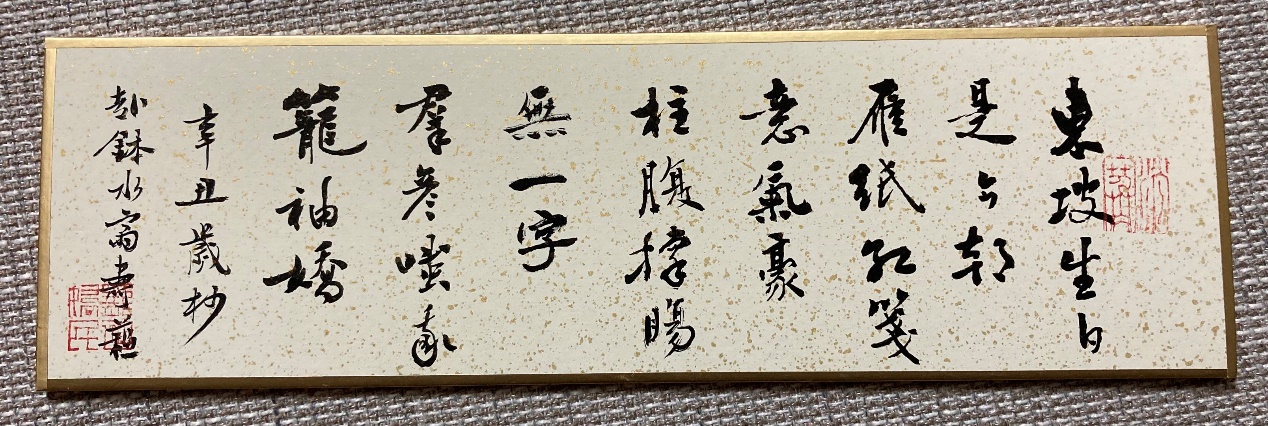 東坡生日
是今朝
雁紙紅箋
意氣豪
柱腹撐腸
無一字
羣嗤
籠袖嬌
辛丑歲杪
鉢水齋壽蘇